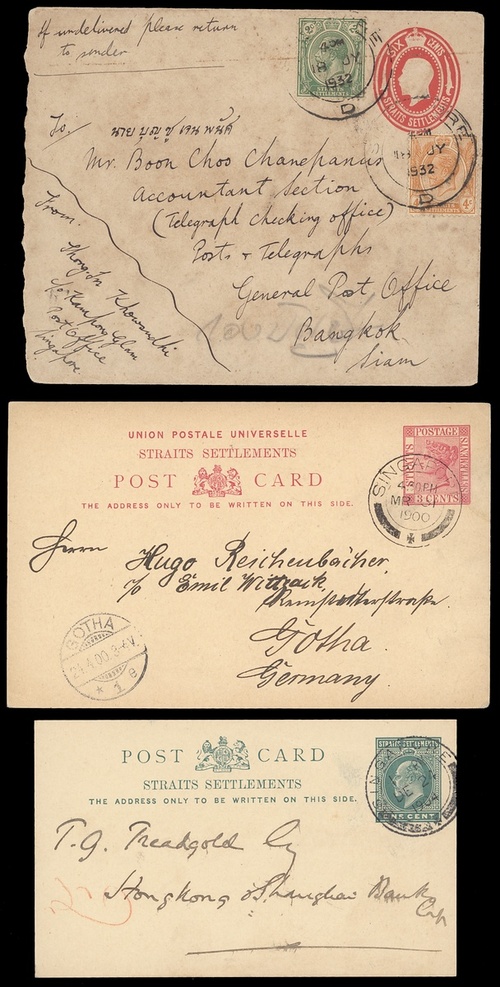 If undelivered please return
to sender
SIX CENTS
STRAITS SETTLEMENTS
2c
SETTLEMENTS
JY
1932
D
4c
JY
1932
D
To,
นาย บุญ ชู เจน พนัศ
Mr. Boon Choo Chanepanus
Accountant Section
(Telegraph checking office)
Posts & Telegraphs
General Post Office
Bangkok
Siam
From.
c/o Kampong Glam
Post Office
Singapore.
UNION POSTALE UNIVERSELLE
STRAITS SETTLEMENTS
POST CARD
THE ADDRESS ONLY TO BE WRITTEN ON THIS SIDE.
POSTAGE
STRAITS SETTLEMENTS
3 CENTS
SINGAPORE
MR
1900
Herrn
Hugo Reichenbächer,
c/o Emil Wittrack
Gotha.
Germany.
GOTHA
24.4.00.3-4V.
* 1 e
POST CARD
STRAITS SETTLEMENTS
THE ADDRESS ONLY TO BE WRITTEN ON THIS SIDE.
STRAITS SETTLEMENTS
ONE CENT
SINGAPORE
DE
1904
T.G. Treadgold Esq
Hongkong & Shanghai Bank